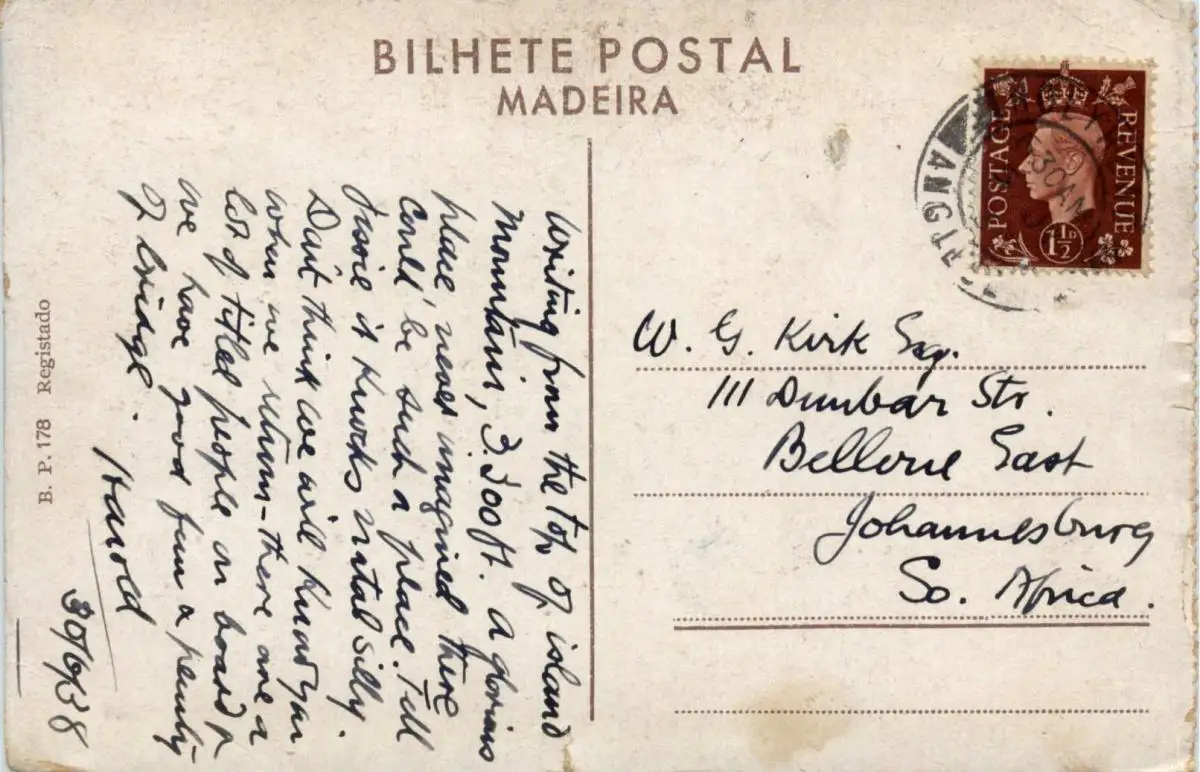 BILHETE POSTAL
MADEIRA
POSTAGE REVENUE
1½D
30AM
ANG
Writing from the top of island
Mountain, 3.300 ft. a glorious
place, never imagined there
could be such a place. Tell
Jessie it knocks Natal silly.
Don't think we will know you
when we return - there are a
lot of titled people on board &
we have good fun a penny
of bridge.
Harold
30/6/38
W. G. Kirk Esq.
111 Dunbar Str.
Bellevue East
Johannesburg
So. Africa.
B. P. 178 Registado